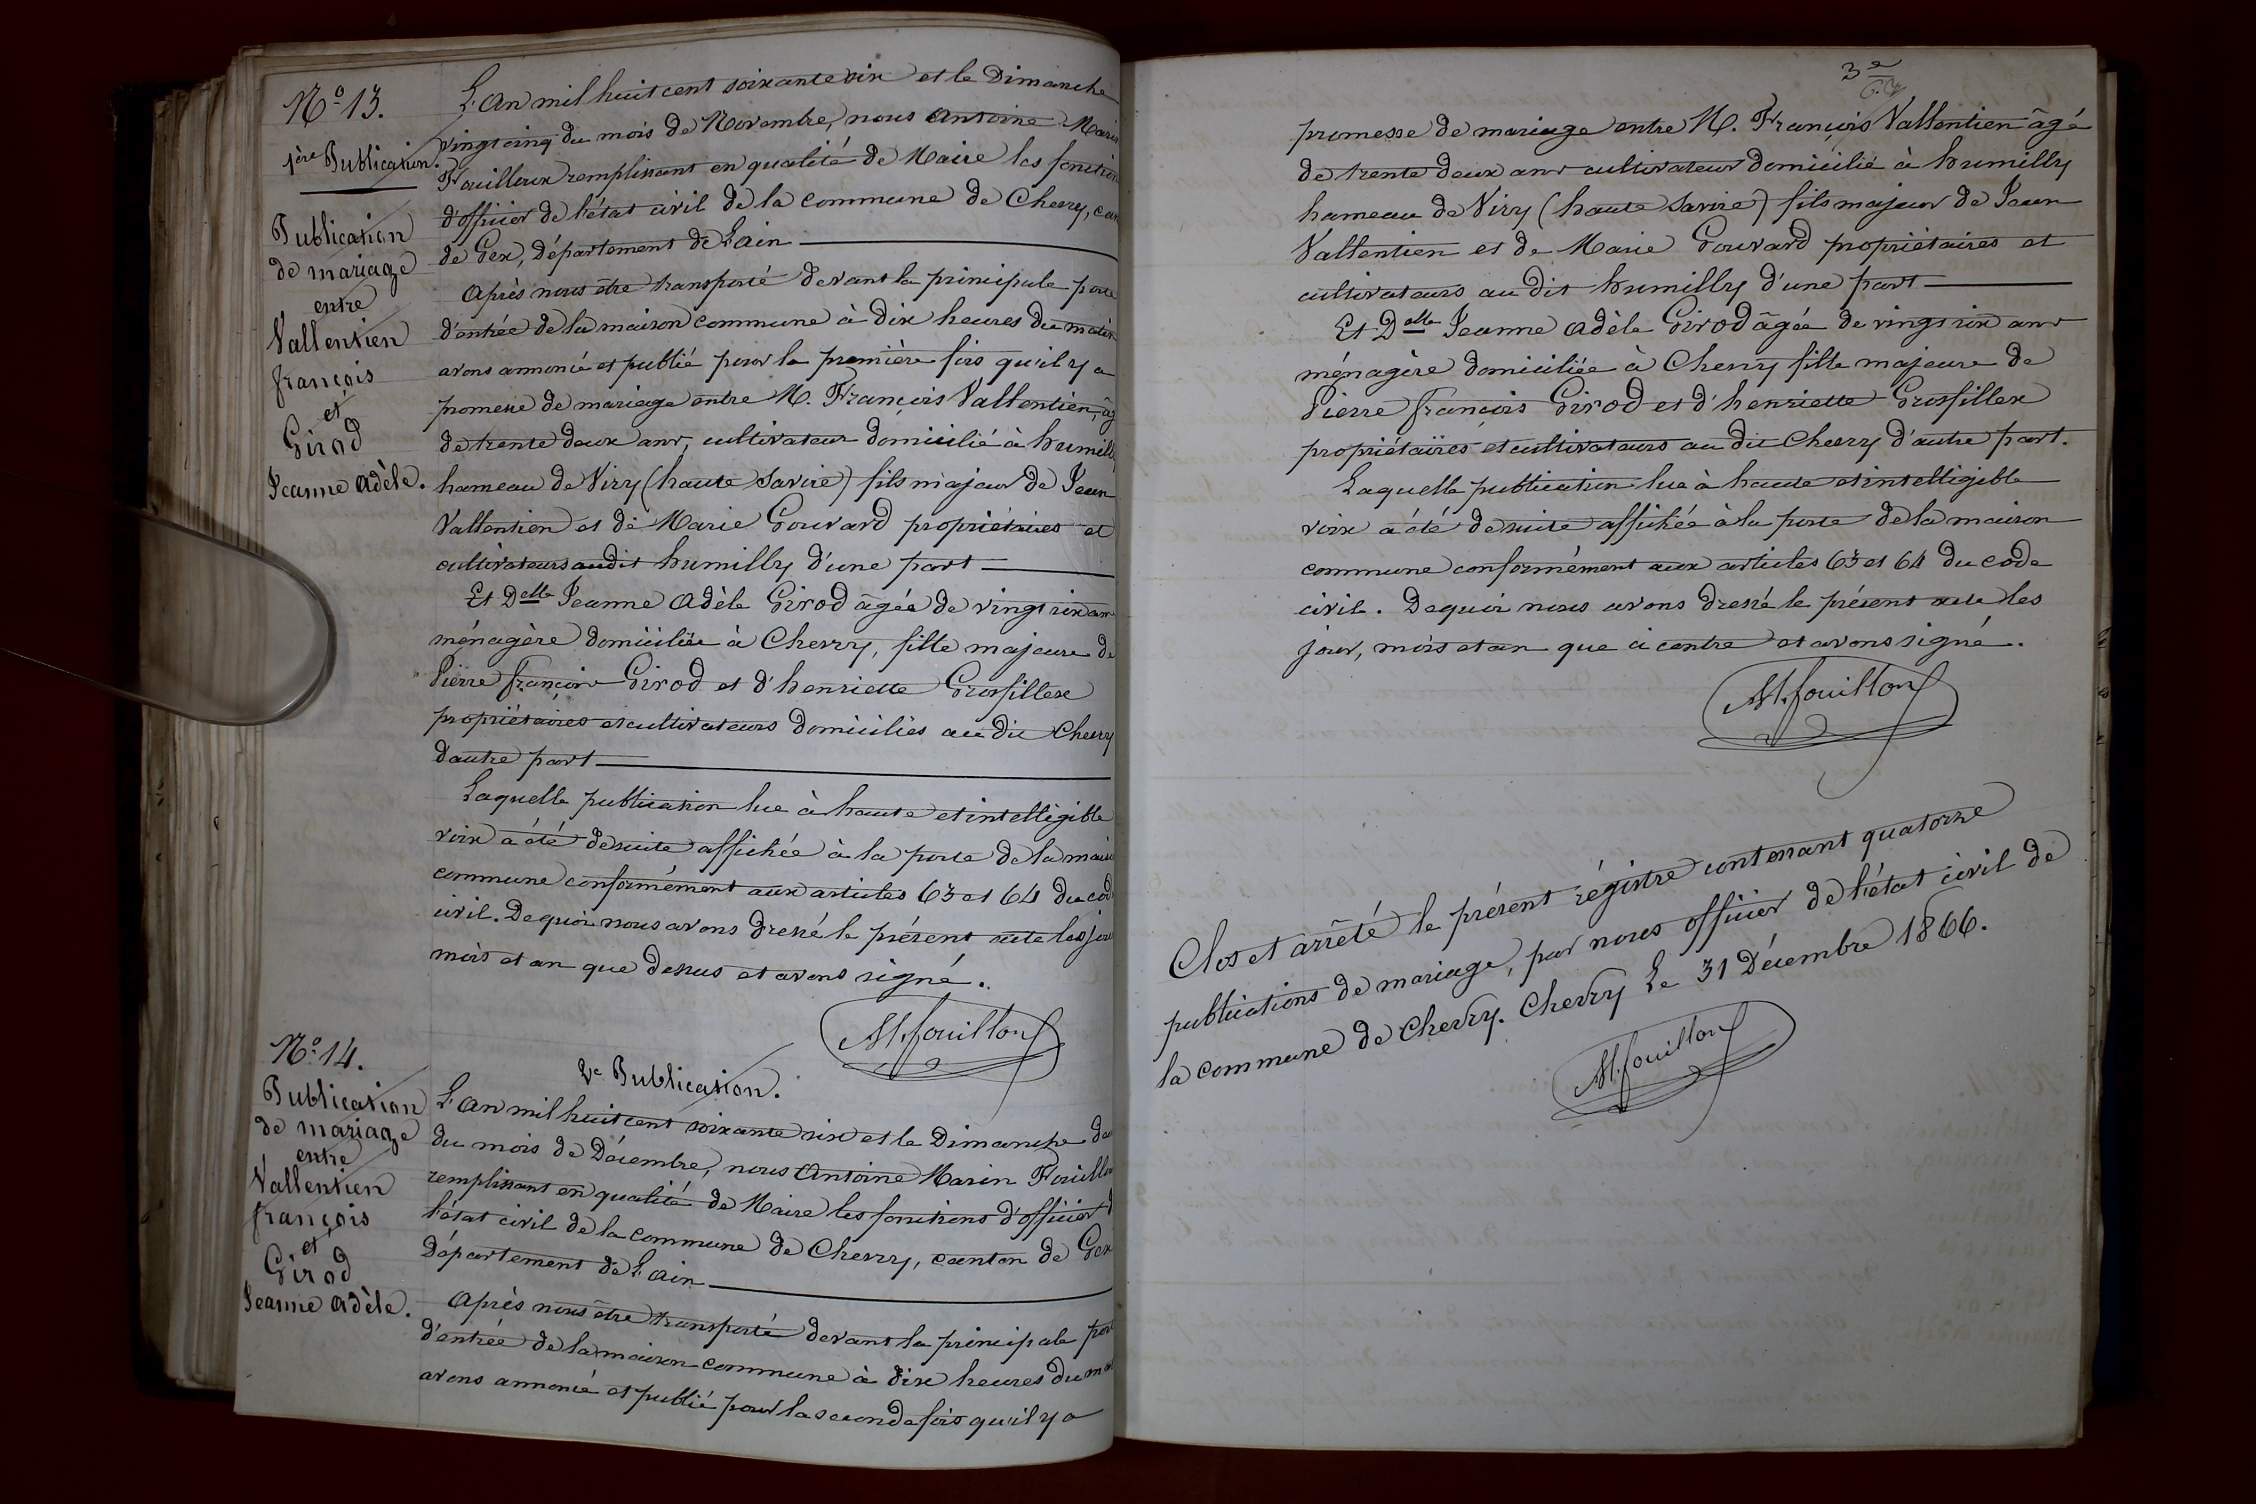 N° 13.
1ère Publication.
Publication
de mariage
entre
Vallentien
françois
et
Girod
Jeanne Adèle.
L'an mil huit cent soixante six et le Dimanche
vingt cinq du mois de Novembre, nous Antoine Marin
Fouilloux remplissant en qualité de Maire les fonction
d'officier de l'état civil de la commune de Chevry, can
de Gex, Département de L'ain
Après nous être transporté devant la principale porte
d'entrée de la maison commune à dix heures du matin
avons annoncé et publié pour la première fois qu'il y a
promesse de mariage entre M. François Vallentien, âg
de trente deux ans, cultivateur domicilié à humilly
hameau de Viry (haute Savoie) fils majeur de Jean
Vallentien et de Marie Gouvard propriétaires et
cultivateurs audit humilly d'une part
Et Delle Jeanne Adèle Girod âgée de vingt six ans
ménagère domiciliée à Chevry, fille majeure de
Pierre François Girod et d'henriette Grosfillex
propriétaires et cultivateurs domiciliés au dit Chevry
d'autre part
Laquelle publication lue à haute et intelligible
voix a été de suite affichée à la porte de la maiso
commune conformément aux articles 63 et 64 du cod
civil. De quoi nous avons dressé le présent acte les jour
mois et an que dessus et avons signé.
M. fouilloux
N° 14.
Publication
de mariage
entre
Vallentien
françois
et
Girod
Jeanne Adèle.
2e Publication.
L'an mil huit cent soixante six et le Dimanche deu
du mois de Décembre, nous Antoine Marin Fouillou
remplissant en qualité de Maire les fonctions d'officier d
l'état civil de la commune de Chevry, canton de Gex
Département de L'ain
Après nous être transporté devant la principale port
d'entrée de la maison commune à dix heures du mat
avons annoncé et publié pour la seconde fois qu'il y a
3e
promesse de mariage entre M. François Vallentien âgé
de trente deux ans cultivateur domicilié à humilly
hameau de Viry (haute Savoie) fils majeur de Jean
Vallentien et de Marie Gouvard propriétaires et
cultivateurs au dit humilly d'une part
Et Delle Jeanne Adèle Girod âgée de vingt six ans
ménagère domiciliée à Chevry fille majeure de
Pierre François Girod et d'henriette Grosfillex
propriétaires et cultivateurs au dit Chevry d'autre part.
Laquelle publication lue à haute et intelligible
voix a été de suite affichée à la porte de la maison
commune conformément aux articles 63 et 64 du code
civil. De quoi nous avons dressé le présent acte les
jour, mois et an que ci contre et avons signé.
M. fouilloux
Clos et arrêté le présent régistre contenant quatorze
publications de mariage, par nous officier de l'état civil de
la commune de Chevry. Chevry Le 31 Décembre 1866.
M. fouilloux